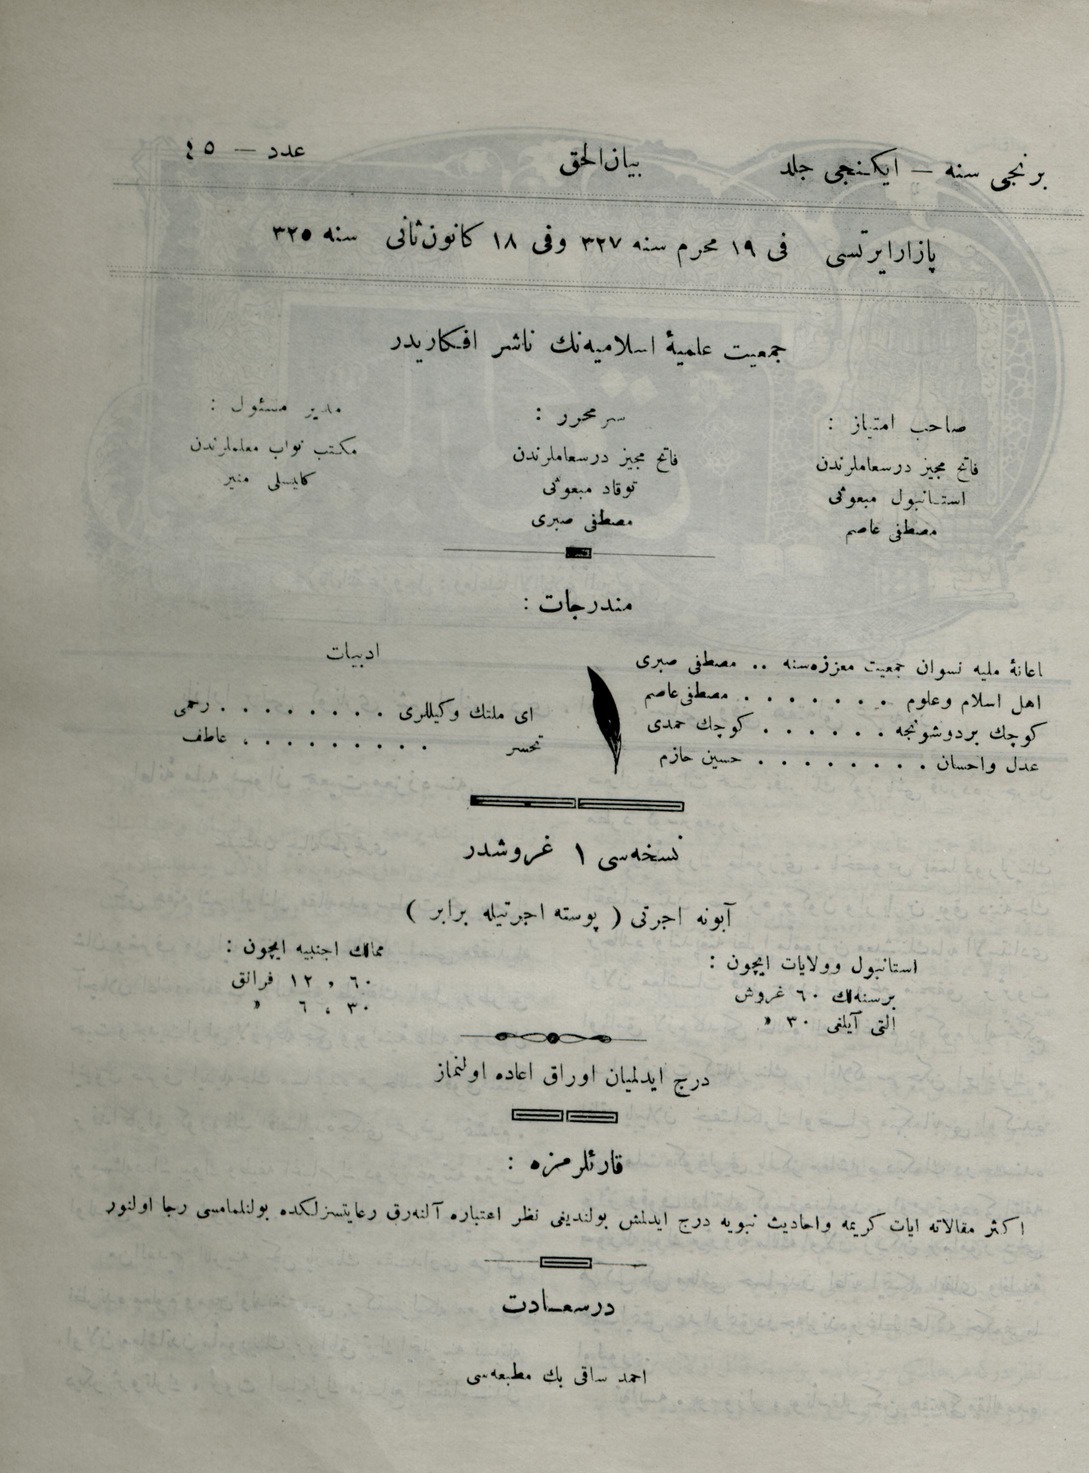 برنجی سنه — ایكنجی جلد
بیان‌الحق
عدد — ٤٥
پازارایرتسی فی ١٩ محرم سنه ٣٢٧ وفی ١٨ كانون‌ثانی سنه ٣٢٥
جمعیت علمیهٔ اسلامیه‌نك ناشر افكاریدر
صاحب امتیاز :
فاتح مجیز درسعاملرندن
استانبول مبعوثی
مصطفی عاصم
سر محرر :
فاتح مجیز درسعاملرندن
توقاد مبعوثی
مصطفی صبری
مدیر مسئول :
مكتب نواب معلملرندن
كلیسلی منیر
مندرجات :
اعانهٔ ملیه نسوان جمعیت معززه‌سنه .. مصطفی صبری
اهل اسلام وعلوم . . . . . . . مصطفی‌عاصم
كوچك بردوشونجه . . . . . . كوچك حمدی
عدل واحسان . . . . . . . . حسین حازم
ادبیات
ای ملتك وكیللری . . . . . . . . رحمی
تحسر . . . . . . . . . عاطف
نسخه‌سی ١ غروشدر
آبونه اجرتی ( پوسته اجرتیله برابر )
استانبول وولایات ایچون :
برسنه‌لك ٦٠ غروش
التی آیلغی ٣٠ »
ممالك اجنبیه ایچون :
٦٠ ، ١٢ فرانق
٣٠ ، ٦ »
درج ایدلمیان اوراق اعاده اولنماز
قارئلرمزه :
اكثر مقالاته ایات كریمه واحادیث نبویه درج ایدلمش بولندیغی نظر اعتباره آلنه‌رق رعایتسزلكده بولنلمامسی رجا اولنور
درسعادت
احمد ساقی بك مطبعه‌سی